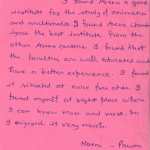 I found Arena a good
institute for the study of animation
and multimedia. I found Arena Chand
igarh the best institute from the
other Arena centers. I found that
the faculties are well educated and
have a better experience. I found
it situated at noise free area. I
found myself at right place where
I can know more and more. So,
I enjoyed it very much.
Name - Pawan